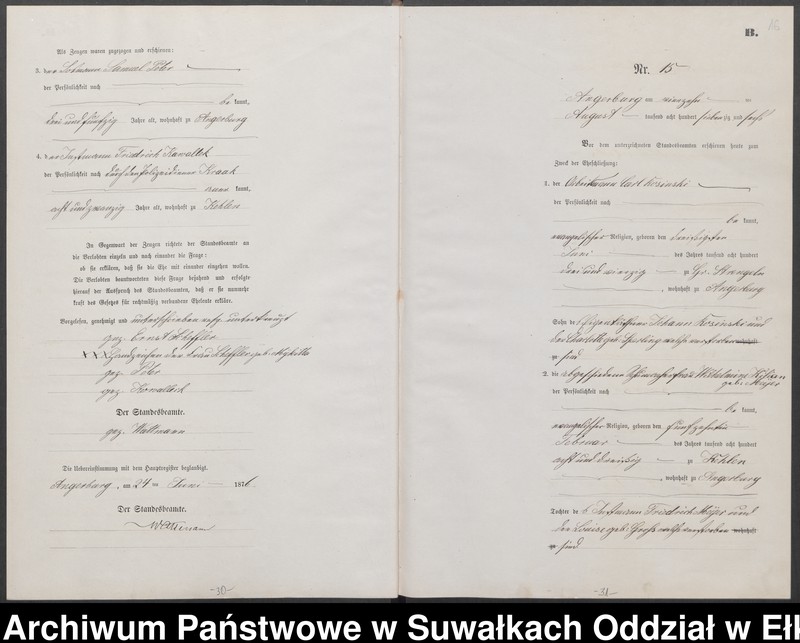 Mit Zeugen waren zugezogen und erschienen:
3. der Losmann Samuel Peter
der Persönlichkeit nach
be kannt,
drei und fünfzig Jahre alt, wohnhaft zu Angerburg
4. der Instmann Friedrich Kowalleck
der Persönlichkeit nach durch den Polizeidiener Kraak
kannt,
acht und zwanzig Jahre alt, wohnhaft zu Kehlen
In Gegenwart der Zeugen richtete der Standesbeamte an
die Verlobten einzeln und nach einander die Frage:
ob sie erklären, daß sie die Ehe mit einander eingehen wollen.
Die Verlobten beantworteten diese Frage bejahend und erfolgte
hierauf der Ausspruch des Standesbeamten, daß er sie nunmehr
kraft des Gesetzes für rechtmäßig verbundene Eheleute erkläre.
Vorgelesen, genehmigt und unterschrieben resp. unterkreuzt
gez. Ernst Scheffler
XXX Handzeichen der Frau Scheffler geb.
gez. Peter
gez. Kowalleck
Der Standesbeamte.
gez. Wallmann
Die Uebereinstimmung mit dem Hauptregister beglaubigt.
Angerburg, am 24ten Juni 1876.
Der Standesbeamte.
Wallmann
-30-
B.
16
Nr. 15
Angerburg am vierzehnten
August tausend acht hundert siebenzig und sechs
Vor dem unterzeichneten Standesbeamten erschienen heute zum
Zweck der Eheschließung:
1. der Arbeitsmann Carl Kosinski
der Persönlichkeit nach
be kannt,
evangelischer Religion, geboren den dreißigsten
Juni des Jahres tausend acht hundert
drei und vierzig zu Gr. Strengeln
, wohnhaft zu Angerburg
Sohn des Eigenkäthner Johann Kosinski und
der Charlotte geb. Sperling welche verstorben wohnhaft
zu sind
2. die abgeschiedene Wilhelmine
geb. Meyer
der Persönlichkeit nach
be kannt,
evangelischer Religion, geboren den fünfzehnten
Februar des Jahres tausend acht hundert
acht und dreißig zu Kehlen
, wohnhaft zu Angerburg
Tochter des Instmann Friedrich Meyer und
der Louise geb. Groß welche verstorben wohnhaft
zu sind
-31-
Archiwum Państwowe w Suwałkach Oddział w Eł